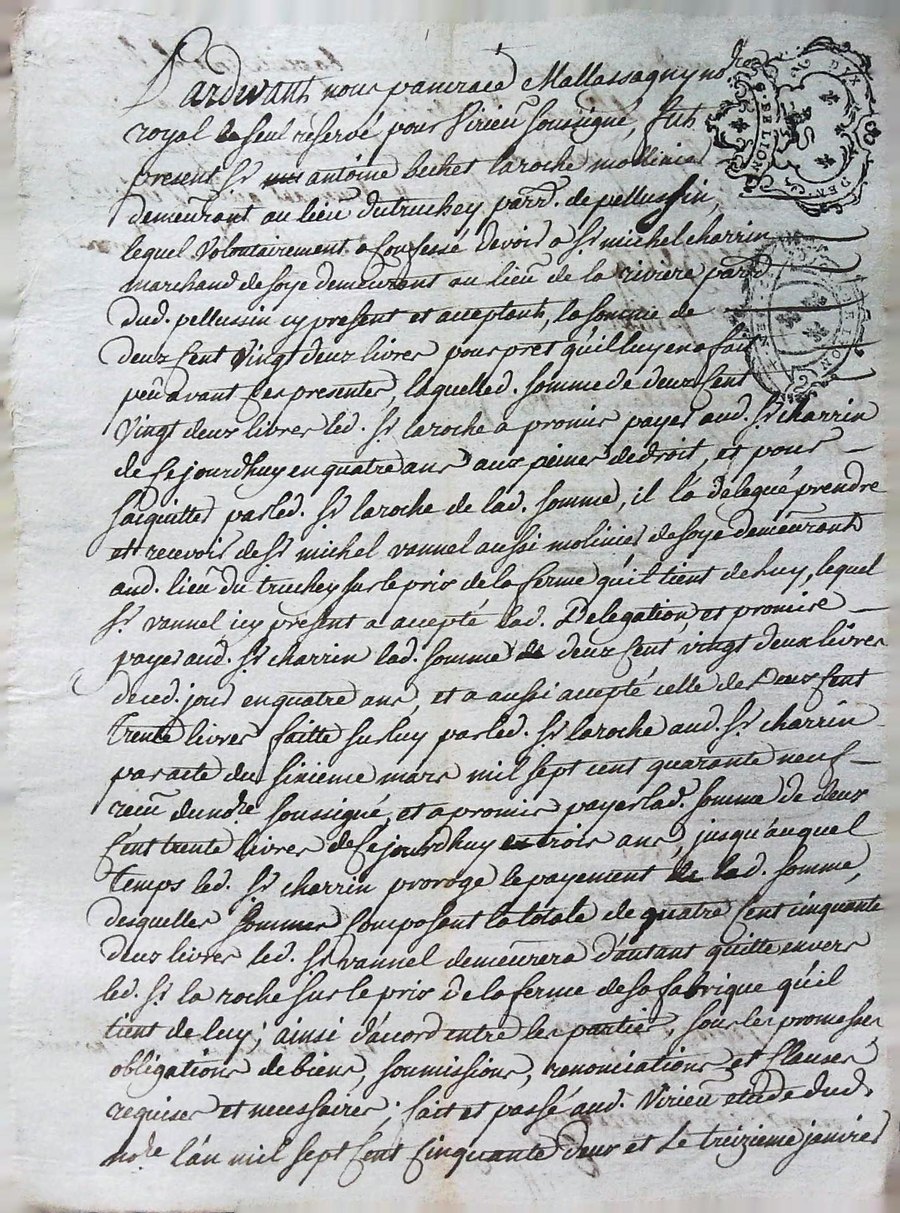 Pardevant nous pancrace Mallassagny no.re
royal & seul reservé pour Virieu soussigné, fut
present Sr antoine bechet laroche moulinier
demeurant au lieu du truchey parr. de pellussin,
lequel volontairement a confessé devoir a Sr michel charrin
marchand de soye demeurant au lieu de la riviere parr.
dud. pellussin icy present et acceptant, la somme de
deux cent vingt deux livres pour pret qu'il luy en a fait
peu avant ces presentes, laquelle d. somme de deux cent
vingt deux livres led. Sr laroche a promis payer aud. Sr charrin
de ce jourdhuy en quatre ans aux peines de droit, et pour
s'acquitter par led. Sr laroche de lad. somme, il l'a delegué prendre
et recevoir de Sr michel vannel aussi molinier de soye demeurant
aud. lieu du truchey sur le prix de la ferme qu'il tient de luy, lequel
Sr. vannel icy present a accepté lad. Delegation et promise
payer aud. Sr charrin lad. somme de deux cent vingt deux livres
de ced. jour en quatre ans, et a aussi accepté celle de Deux cent
trente livres faitte sur luy par led. Sr laroche aud. Sr charrin
par acte du sixieme mars mil sept cent quarante neuf
receu du no.re soussigné, et a promis payer lad. somme de deux
cent trente livres de ce jourdhuy en trois ans, jusqu'auquel
temps led. Sr charrin proroge le payement de lad. somme,
desquelles sommes composant la totale de quatre cent cinquante
deux livres led. Sr vannel demeurera d'autant quitte envers
led. Sr la roche sur le prix de la ferme de sa fabrique qu'il
tient de luy; ainsi d'accord entre les parties, sous les promesses
obligations de biens, soumissions, renonciations et clauses
requises et necessaires; fait et passé aud. Virieu etude dud.
no.re l'an mil sept cent cinquante deux et le treizieme janvier